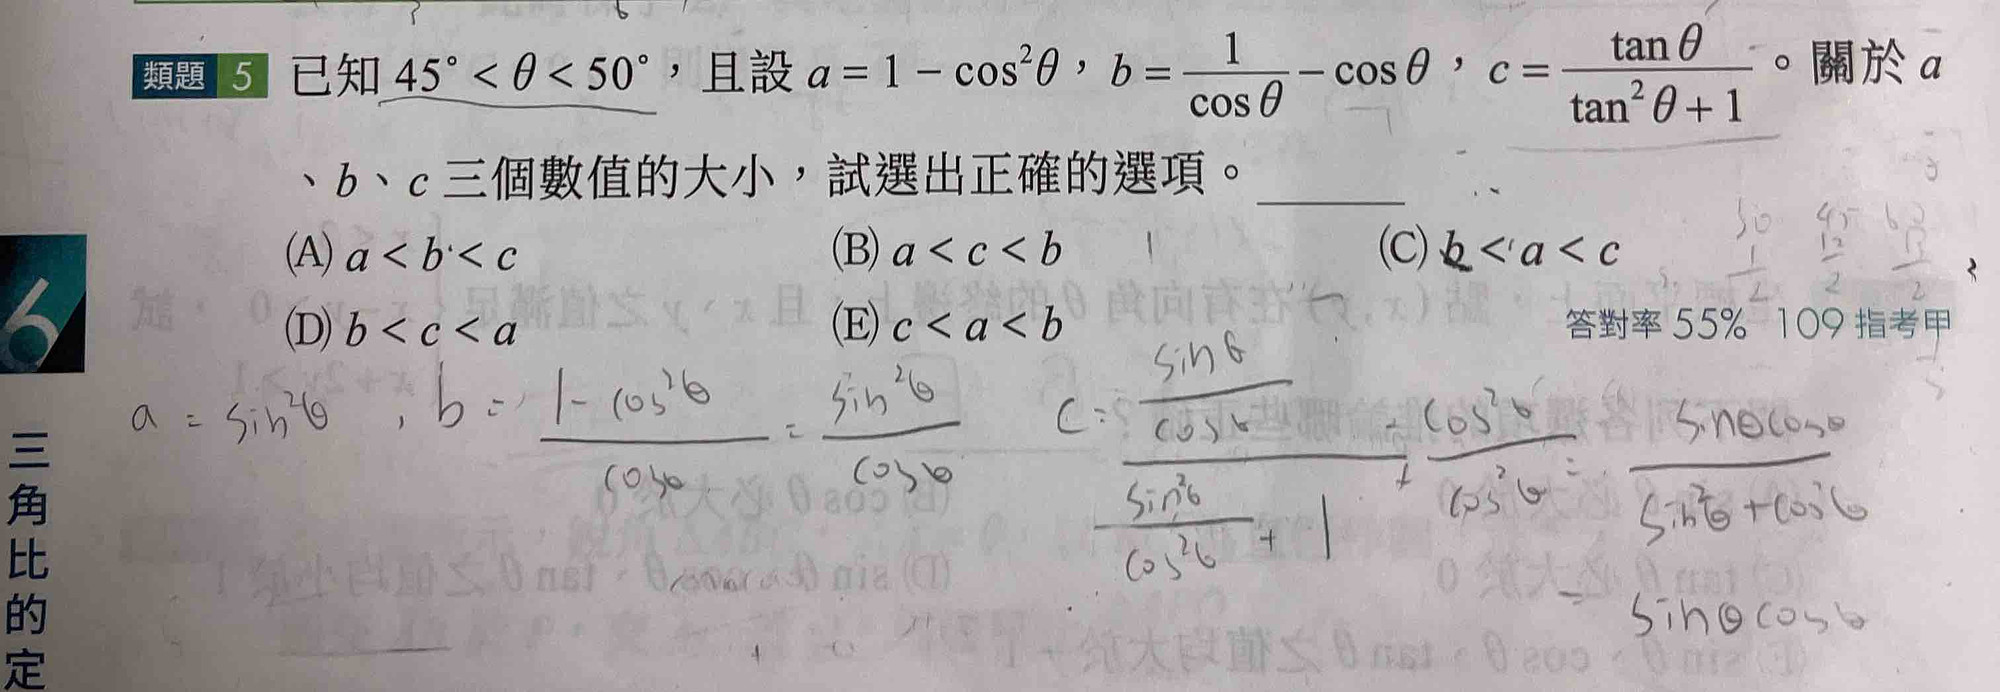 類題 5 已知 45° < θ < 50°，且設 a = 1 − cos²θ，b = 1/cos θ − cos θ，c = tan θ/(tan² θ + 1)。關於 a
、b、c 三個數值的大小，試選出正確的選項。
(A) a < b < c (B) a < c < b (C) b < a < c
(D) b < c < a (E) c < a < b
答對率 55% 109 指考甲
a = sin²θ , b = (1 − cos²θ)/cosθ = sin²θ/cosθ
c = (sinθ/cosθ)/(sin²θ/cos²θ + 1) cos²θ/cos²θ = sinθcosθ/(sin²θ + cos²θ)
= sinθcosθ
30 45 60
1/2 √2/2 √3/2
6
三角比的定